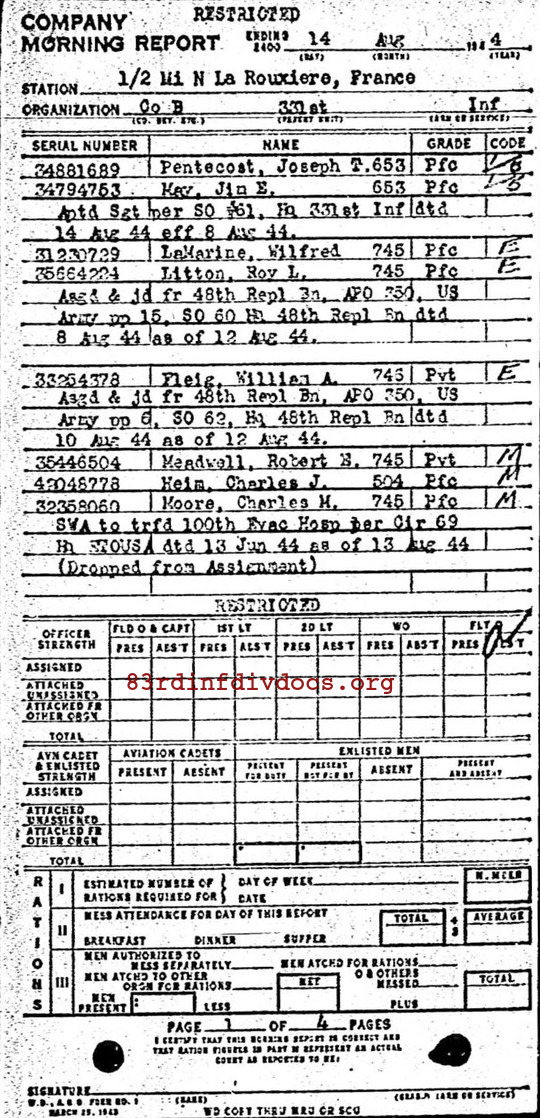 RESTRICTED
COMPANY
MORNING REPORT ENDING 2400 14 Aug 1944
(DAY) (MONTH) (YEAR)
STATION 1/2 Mi N La Rouxiere, France
ORGANIZATION Co B 331st Inf
(CO. DET. ETC.) (PARENT UNIT) (ARM OR SERVICE)
SERIAL NUMBER NAME GRADE CODE
34881689 Pentecost, Joseph T. 653 Pfc
34794753 May, Jim E. 653 Pfc
Aptd Sgt per SO #61, Hq 331st Inf dtd
14 Aug 44 eff 8 Aug 44.
31230729 LaMarine, Wilfred 745 Pfc E
35664224 Litton, Roy L. 745 Pfc E
Asgd & jd fr 48th Repl Bn, APO 350, US
Army pp 15, SO 60 Hq 48th Repl Bn dtd
8 Aug 44 as of 12 Aug 44.
33254378 Fleig, William A. Pvt E
Asgd & jd fr 48th Repl Bn, APO 350, US
Army pp 6, SO 62, Hq 48th Repl Bn dtd
10 Aug 44 as of 12 Aug 44.
35446504 Meadwell, Robert E. 745 Pvt M
Heim, Charles J. 504 Pfc M
32358060 Moore, Charles M. 745 Pfc M
SWA to trfd 100th Evac Hosp per Cir 69
Hq ETOUSA dtd 13 Jun 44 as of 13 Aug 44
(Dropped from Assignment)
RESTRICTED
OFFICER STRENGTH FLD O & CAPT 1ST LT 2D LT WO FLT
PRES ABS'T PRES ABS'T PRES ABS'T PRES ABS'T PRES ABS'T
ASSIGNED
ATTACHED UNASSIGNED
83rdinfdivdocs.org
ATTACHED FR OTHER ORGN
TOTAL
AVN CADET & ENLISTED STRENGTH AVIATION CADETS ENLISTED MEN
PRESENT ABSENT PRESENT FOR DUTY PRESENT NOT FOR DY ABSENT PRESENT AND ABSENT
ASSIGNED
ATTACHED UNASSIGNED
ATTACHED FR OTHER ORGN
TOTAL
RATIONS
I ESTIMATED NUMBER OF RATIONS REQUIRED FOR } DAY OF WEEK
DATE
II MESS ATTENDANCE FOR DAY OF THIS REPORT TOTAL AVERAGE
BREAKFAST DINNER SUPPER
III MEN AUTHORIZED TO MESS SEPARATELY MEN ATCHD FOR RATIONS
MEN ATCHD TO OTHER ORGN FOR RATIONS NET O & OTHERS MESSED TOTAL
MEN PRESENT LESS PLUS
PAGE 1 OF 4 PAGES
I CERTIFY THAT THIS MORNING REPORT IS CORRECT AND
THAT RATION FIGURES IN PART III REPRESENT AN ACTUAL
COUNT AS REPORTED TO ME:
SIGNATURE
W.D., A.G.O. FORM NO. 1 (NAME) (GRADE) (ARM OR SERVICE)
MARCH 25, 1943
WD COPY THRU MRU OR SCU